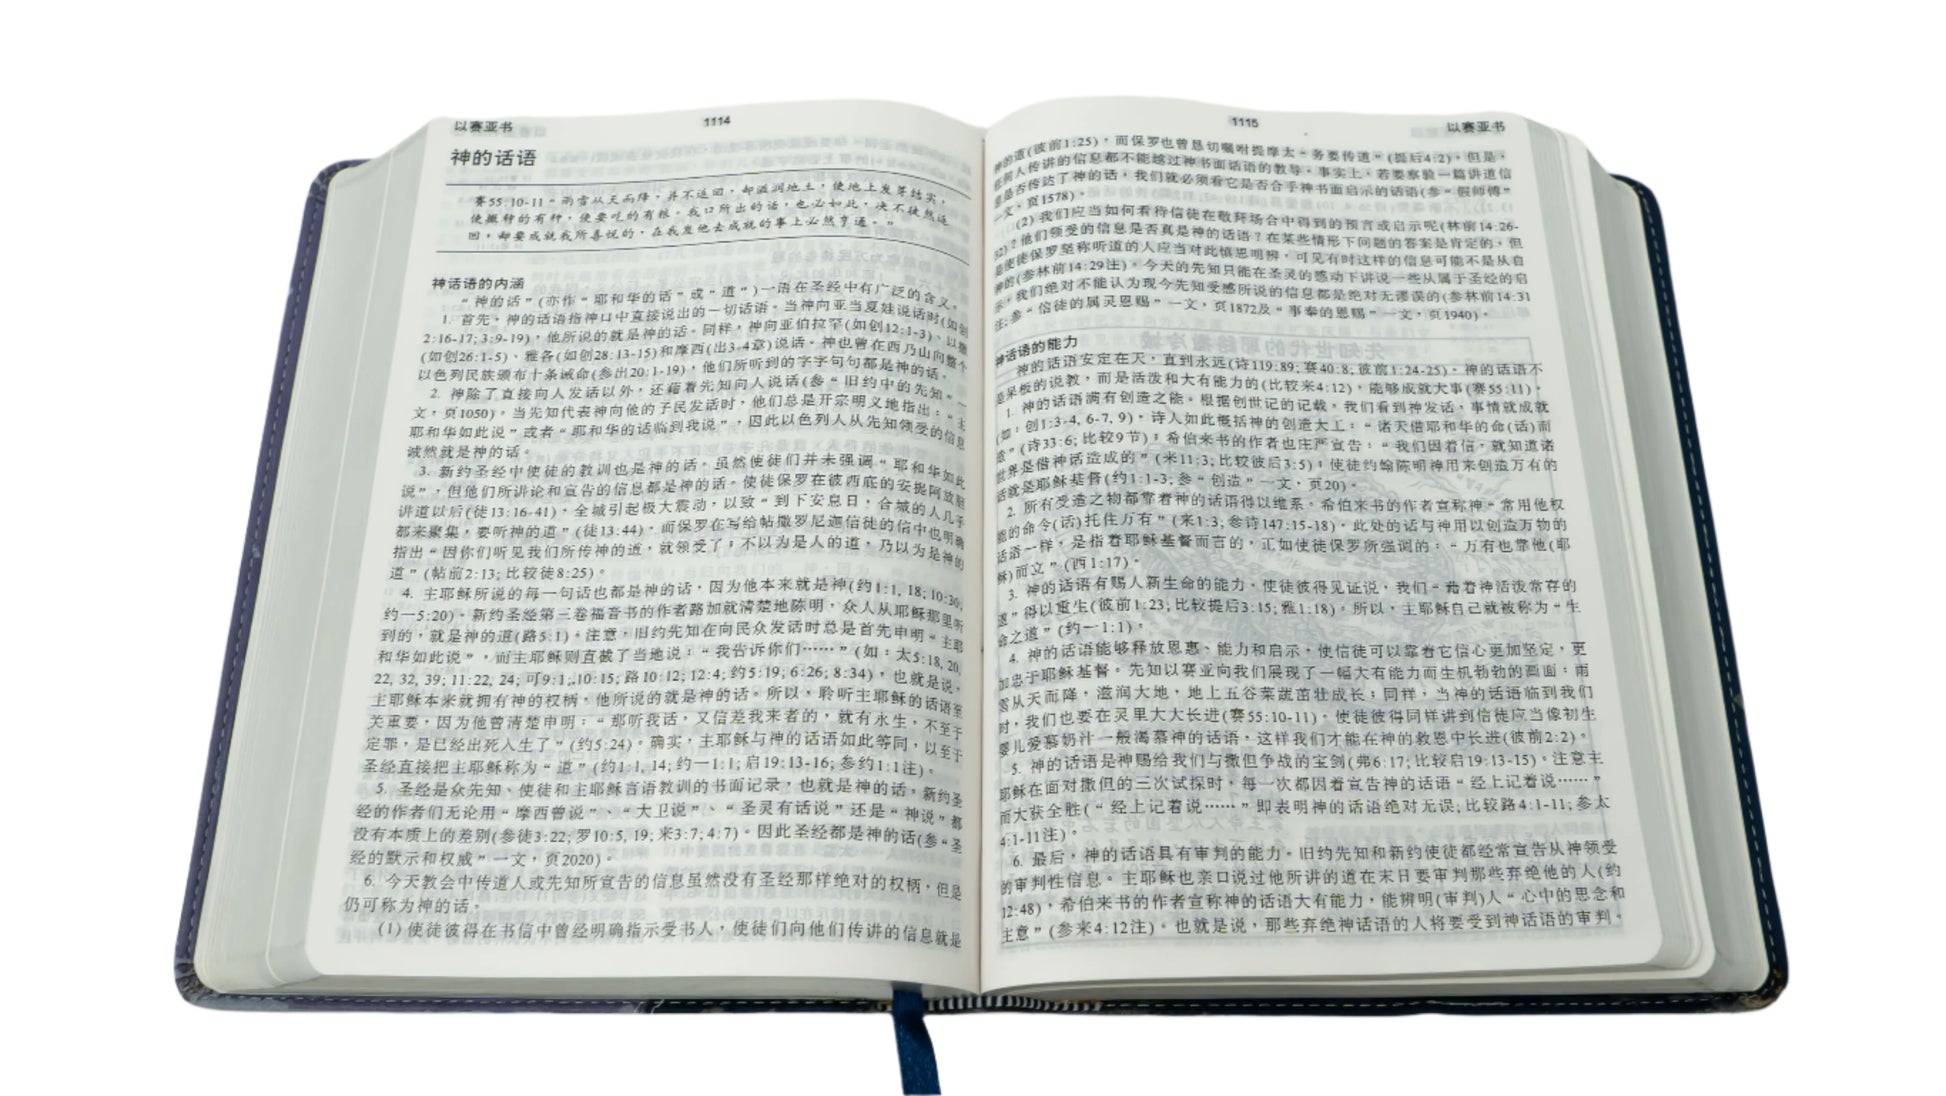 以赛亚书 1114
神的话语
赛55:10-11“雨雪从天而降，并不返回，却滋润地土，使地上发芽结实，
使撒种的有种，使要吃的有粮。我口所出的话，也必如此，决不徒然返
回，却要成就我所喜悦的，在我发他去成就的事上必然亨通。”
神话语的内涵
“神的话”(亦作“耶和华的话”或“道”)一语在圣经中有广泛的含义。
1. 首先，神的话语指神口中直接说出的一切话语。当神向亚当夏娃说话时(如创
2:16-17; 3:9-19)，他所说的就是神的话。同样，神向亚伯拉罕(如创12:1-3)、以撒
(如创26:1-5)、雅各(如创28:13-15)和摩西(出3-4章)说话。神也曾在西乃山向整个
以色列民族颁布十条诫命(参出20:1-19)，他们所听到的字字句句都是神的话。
2. 神除了直接向人发话以外，还藉着先知向人说话(参“旧约中的先知”一
文，页1050)。当先知代表神向他的子民发话时，他们总是开宗明义地指出：“主
耶和华如此说”或者“耶和华的话临到我说”，因此以色列人从先知领受的信息
诚然就是神的话。
3. 新约圣经中使徒的教训也是神的话。虽然使徒们并未强调“耶和华如此
说”，但他们所讲论和宣告的信息都是神的话。使徒保罗在彼西底的安提阿放胆
讲道以后(徒13:16-41)，全城引起极大震动，以致“到下安息日，合城的人几乎
都来聚集，要听神的道”(徒13:44)。而保罗在写给帖撒罗尼迦信徒的信中也明确
指出“因你们听见我们所传神的道，就领受了；不以为是人的道，乃以为是神的
道”(帖前2:13; 比较徒8:25)。
4. 主耶稣所说的每一句话也都是神的话，因为他本来就是神(约1:1, 18; 10:30;
约一5:20)。新约圣经第三卷福音书的作者路加就清楚地陈明，众人从耶稣那里听
到的，就是神的道(路5:1)。注意，旧约先知在向民众发话时总是首先申明“主耶
和华如此说”，而主耶稣则直截了当地说：“我告诉你们……”(如：太5:18, 20,
22, 32, 39; 11:22, 24; 可9:1; 10:15; 路10:12; 12:4; 约5:19; 6:26; 8:34)，也就是说，
主耶稣本来就拥有神的权柄，他所说的就是神的话。所以，聆听主耶稣的话语至
关重要，因为他曾清楚申明：“那听我话，又信差我来者的，就有永生，不至于
定罪，是已经出死入生了”(约5:24)。确实，主耶稣与神的话语如此等同，以至于
圣经直接把主耶稣称为“道”(约1:1, 14; 约一1:1; 启19:13-16; 参约1:1注)。
5. 圣经是众先知、使徒和主耶稣言语教训的书面记录，也就是神的话。新约圣
经的作者们无论用“摩西曾说”、“大卫说”、“圣灵有话说”还是“神说”都
没有本质上的差别(参徒3:22; 罗10:5, 19; 来3:7; 4:7)。因此圣经都是神的话(参“圣
经的默示和权威”一文，页2020)。
6. 今天教会中传道人或先知所宣告的信息虽然没有圣经那样绝对的权柄，但是
仍可称为神的话。
(1) 使徒彼得在书信中曾经明确指示受书人，使徒们向他们传讲的信息就是
1115 以赛亚书
神的道(彼前1:25)，而保罗也曾恳切嘱咐提摩太“务要传道”(提后4:2)。但是，
任何人传讲的信息都不能越过神书面话语的教导。事实上，若要察验一篇讲道信
息是否传达了神的话，我们就必须看它是否合乎神书面启示的话语(参“假师傅”
一文，页1578)。
(2) 我们应当如何看待信徒在敬拜场合中得到的预言或启示呢(林前14:26-
32)？他们领受的信息是否真是神的话语？在某些情形下问题的答案是肯定的。但
是使徒保罗坚称听道的人应当对此慎思明辨，可见有时这样的信息可能不是从自
神的(参林前14:29注)。今天的先知只能在圣灵的感动下讲说一些从属于圣经的启
示。我们绝对不能认为现今先知受感所说的信息都是绝对无谬误的(参林前14:31
注; 参“信徒的属灵恩赐”一文，页1872及“事奉的恩赐”一文，页1940)。
神话语的能力
神的话语安定在天，直到永远(诗119:89; 赛40:8; 彼前1:24-25)。神的话语不
是呆板的说教，而是活泼和大有能力的(比较来4:12)，能够成就大事(赛55:11)。
1. 神的话语满有创造之能。根据创世记的记载，我们看到神发话，事情就成就
(如：创1:3-4, 6-7, 9)。诗人如此概括神的创造大工：“诸天借耶和华的命(话)而
造”(诗33:6; 比较9节)；希伯来书的作者也庄严宣告：“我们因着信，就知道诸
世界是借神话造成的”(来11:3; 比较彼后3:5)；使徒约翰陈明神用来创造万有的
话就是耶稣基督(约1:1-3; 参“创造”一文，页20)。
2. 所有受造之物都靠着神的话语得以维系。希伯来书的作者宣称神“常用他权
能的命令(话)托住万有”(来1:3; 参诗147:15-18)。此处的话与神用以创造万物的
话语一样，是指着耶稣基督而言的，正如使徒保罗所强调的：“万有也靠他(耶
稣)而立”(西1:17)。
3. 神的话语有赐人新生命的能力。使徒彼得见证说，我们“藉着神活泼常存的
道”得以重生(彼前1:23; 比较提后3:15; 雅1:18)。所以，主耶稣自己就被称为“生
命之道”(约一1:1)。
4. 神的话语能够释放恩惠、能力和启示，使信徒可以靠着它信心更加坚定，更
加忠于耶稣基督。先知以赛亚向我们展现了一幅大有能力而生机勃勃的画面：雨
雪从天而降，滋润大地，地上五谷菜蔬茁壮成长；同样，当神的话语临到我们
时，我们也要在灵里大大长进(赛55:10-11)。使徒彼得同样讲到信徒应当像初生
婴儿爱慕奶汁一般渴慕神的话语，这样我们才能在神的救恩中长进(彼前2:2)。
5. 神的话语是神赐给我们与撒但争战的宝剑(弗6:17; 比较启19:13-15)。注意主
耶稣在面对撒但的三次试探时，每一次都因着宣告神的话语“经上记着说……”
而大获全胜(“经上记着说……”即表明神的话语绝对无误; 比较路4:1-11; 参太
4:1-11注)。
6. 最后，神的话语具有审判的能力。旧约先知和新约使徒都经常宣告从神领受
的审判性信息。主耶稣也亲口说过他所讲的道在末日要审判那些弃绝他的人(约
12:48)，希伯来书的作者宣称神的话语大有能力，能辨明(审判)人“心中的思念和
主意”(参来4:12注)。也就是说，那些弃绝神话语的人将要受到神话语的审判。